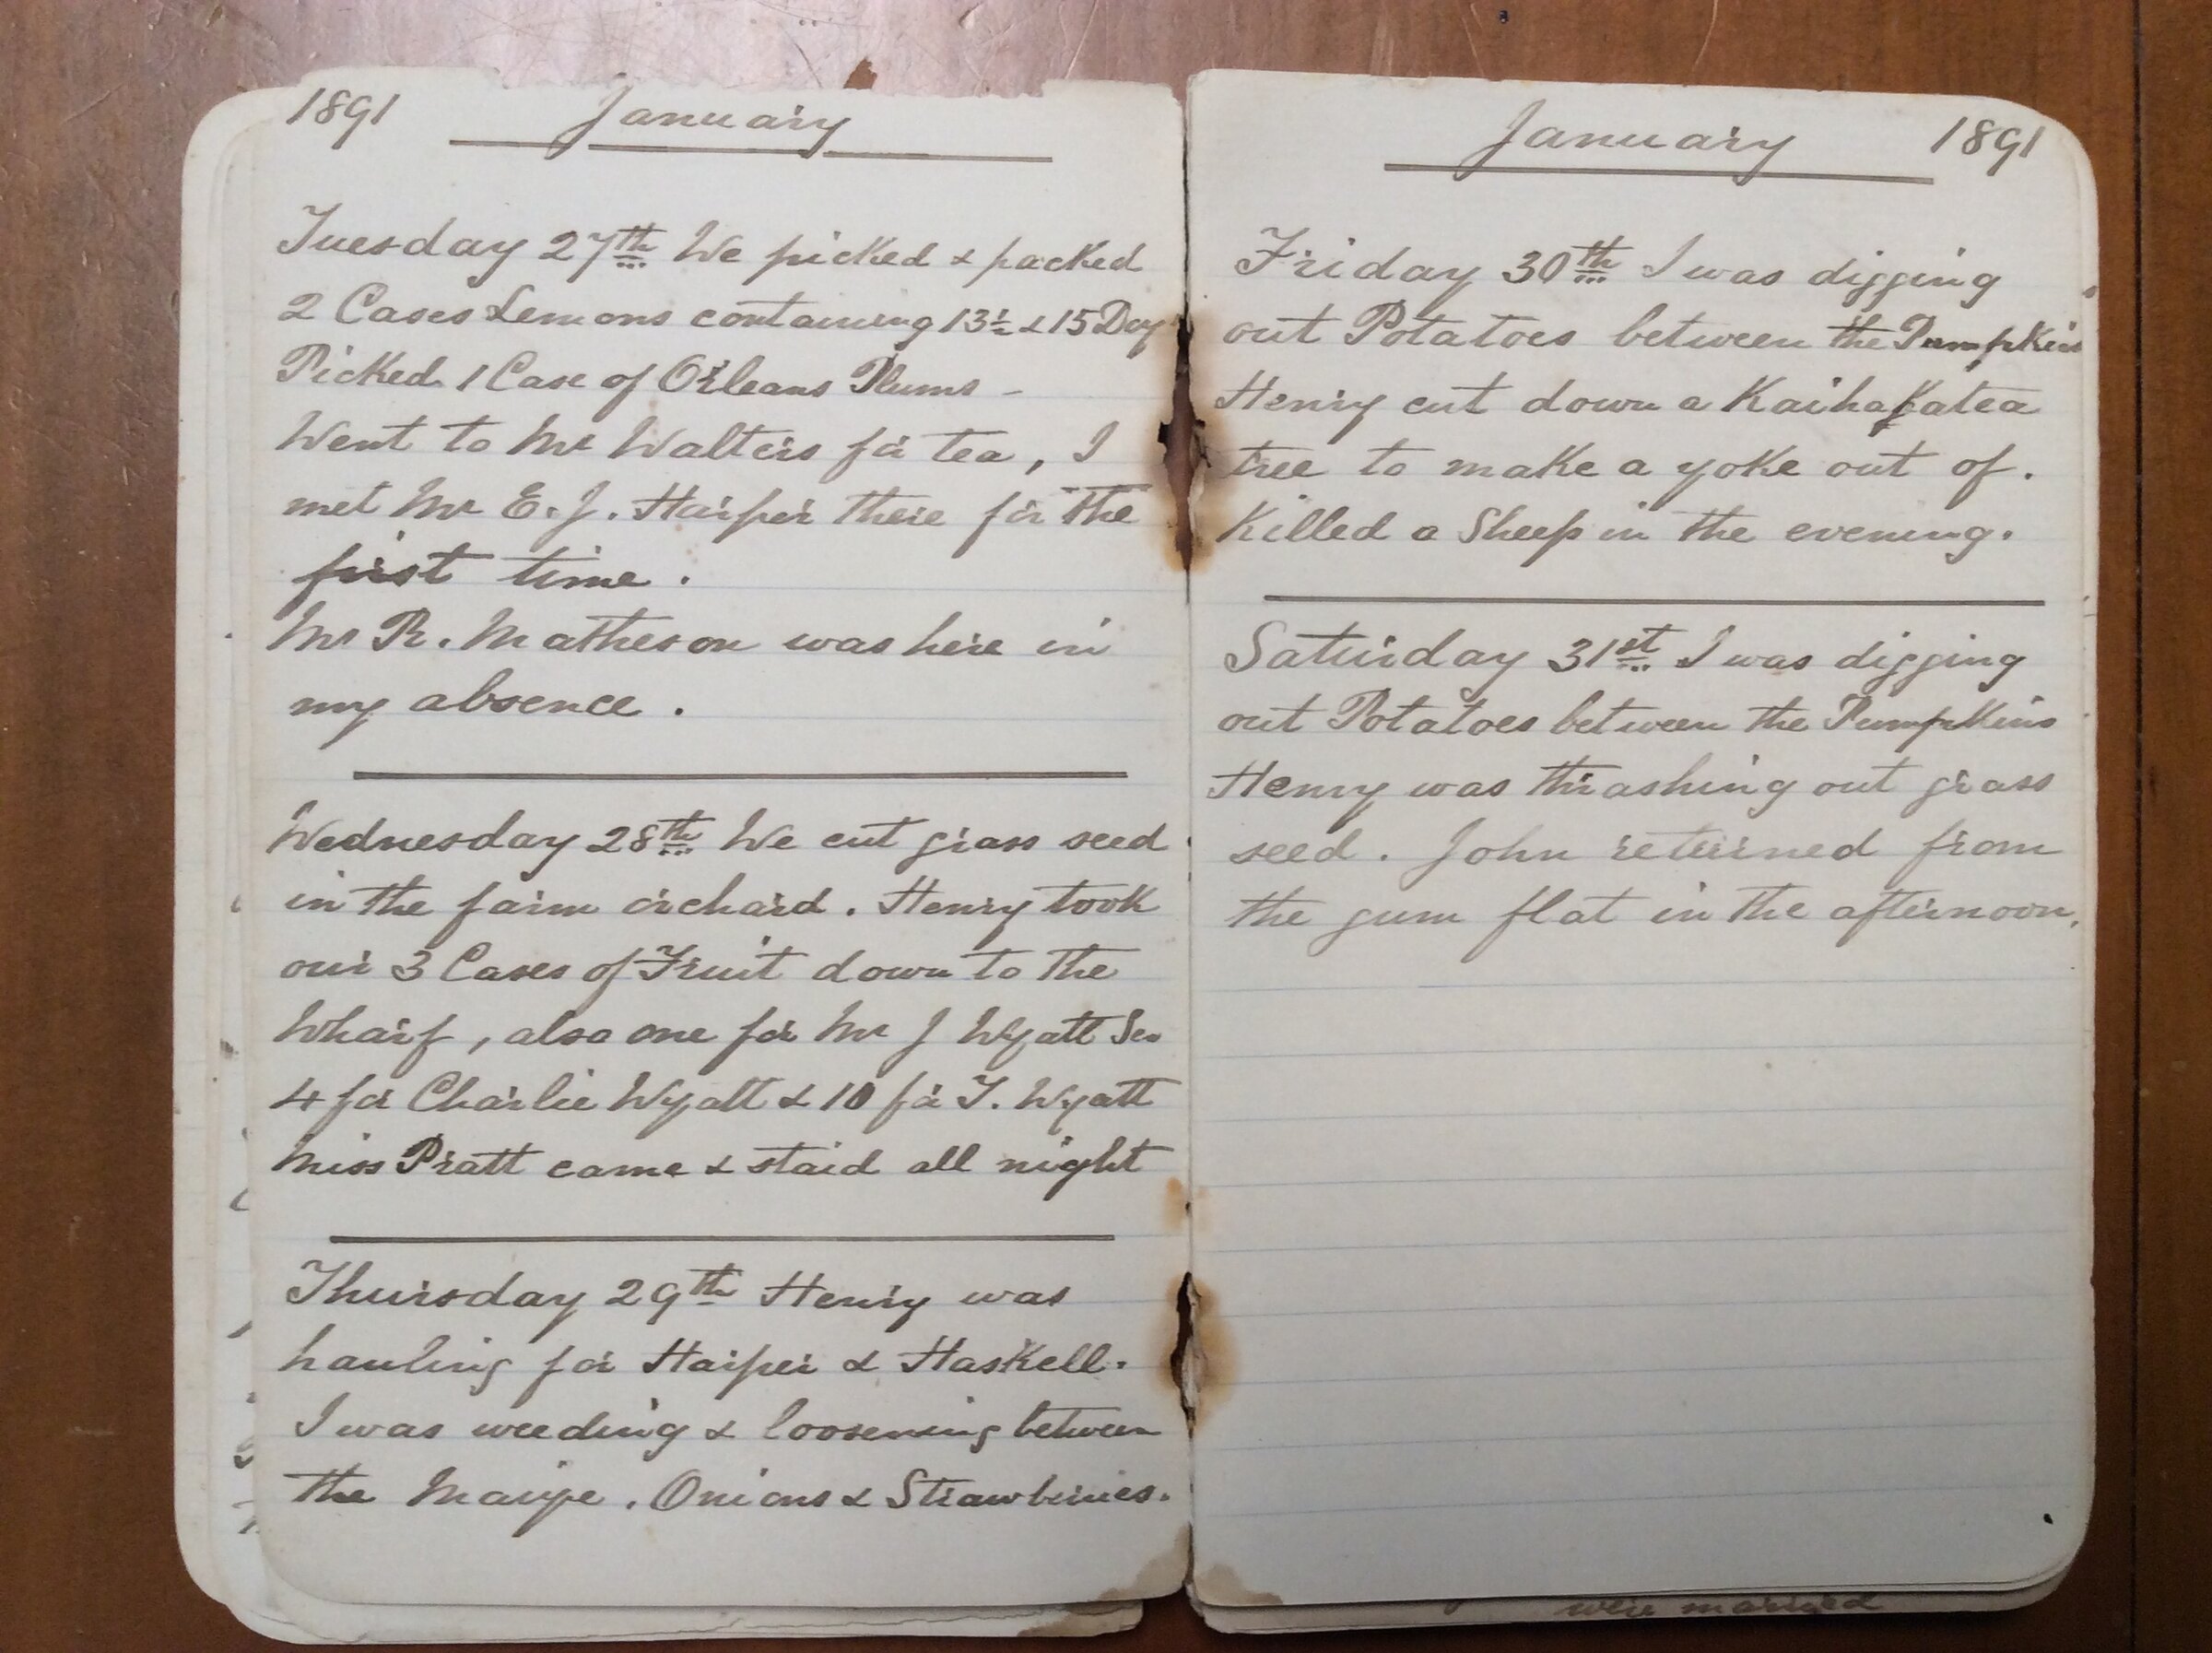 1891 January
Tuesday 27th We picked & packed
2 Cases Lemons containing 13½ & 15 Doz
Picked 1 Case of Orleans Plums -
Went to Mr Walters for tea, I
met Mr E. J. Harper there for the
first time.
Mr R. Matheson was here in
my absence.
Wednesday 28th We cut grass seed
in the farm orchard. Henry took
our 3 Cases of Fruit down to the
Wharf, also one for Mr J Wyatt Sen
4 for Charlie Wyatt & 10 for T. Wyatt
Miss Pratt came & staid all night
Thursday 29th Henry was
hauling for Harper & Haskell.
I was weeding & loosening between
the Maize, Onions & Strawberries.
January 1891
Friday 30th I was digging
out Potatoes between the Pumpkins
Henry cut down a Kaihakatea
tree to make a yoke out of.
Killed a Sheep in the evening.
Saturday 31st I was digging
out Potatoes between the Pumpkins
Henry was thrashing out grass
seed. John returned from
the gum flat in the afternoon.
were married